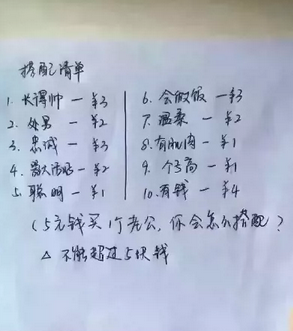 搭配清单
1. 长得帅 — ¥3
2. 处男 — ¥2
3. 忠诚 — ¥3
4. — ¥2
5. 聪明 — ¥1
6. 会做饭 — ¥3
7. 温柔 — ¥2
8. 有肌肉 — ¥1
9. 个子高 — ¥1
10. 有钱 — ¥4
(5元钱买1个老公, 你会怎么搭配?
△ 不能超过5块钱